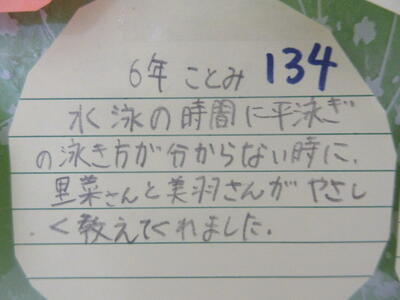 6年 ことみ 134
水泳の時間に平泳ぎ
の泳き方が分からない時に、
里菜さんと美羽さんがやさし
く教えてくれました。